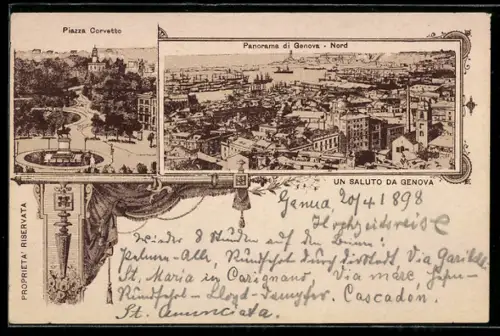 Piazza Corvetto
Panorama di Genova - Nord
UN SALUTO DA GENOVA
PROPRIETA' RISERVATA
Genua 20/4 1898
Hochzeitsreise
Wieder 8 Stunden auf den
Rundfahrt durch die Stadt, Via Garibaldi
St. Maria in Carignano. Via mare,
Rundfahrt - Lloyd - Dampfer. Cascaden.
St. Anunciata.